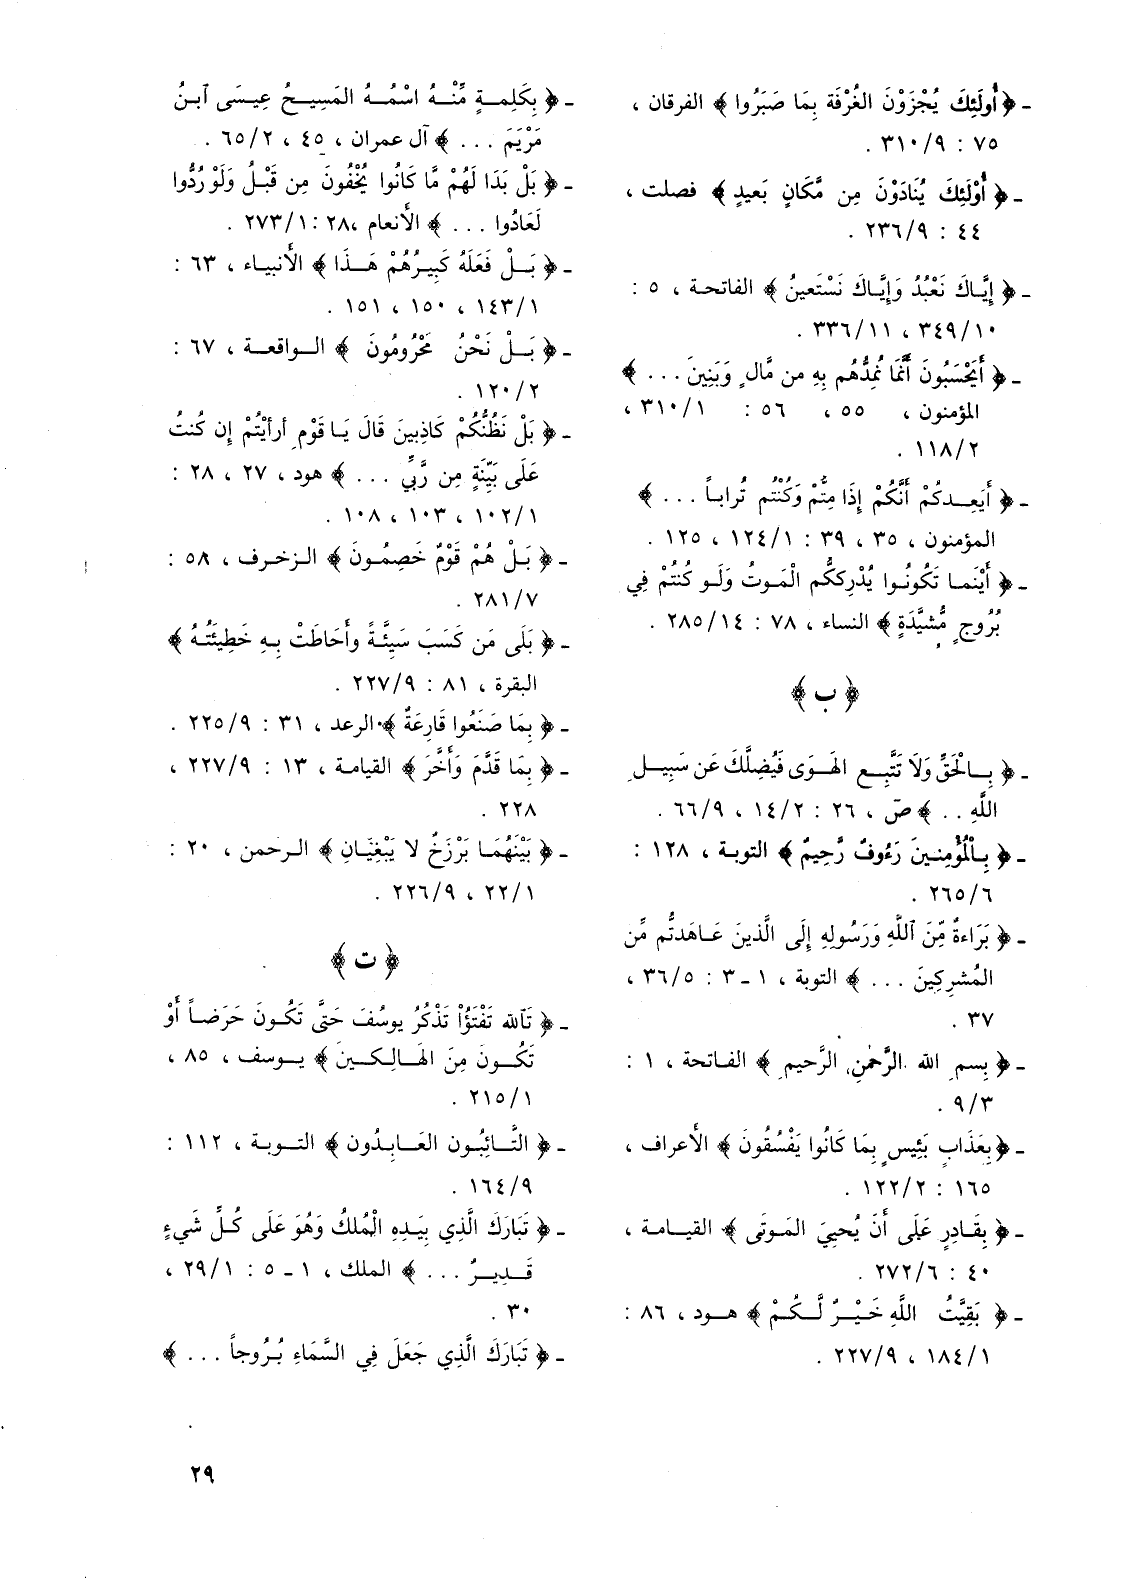 - ﴿ أُولَئِكَ يُجْزَوْنَ الغُرْفَة بِمَا صَبَرُوا ﴾ الفرقان ،
٧٥ : ٣١٠/٩ .
- ﴿ أُوْلَئِكَ يُنَادَوْنَ مِن مَّكَانٍ بَعيدٍ ﴾ فصلت ،
٤٤ : ٢٣٦/٩ .
- ﴿ إِيَّاكَ نَعْبُدُ وَإِيَّاكَ نَسْتَعينُ ﴾ الفاتحة ، ٥ :
٣٤٩/١٠ ، ٣٣٦/١١ .
- ﴿ أَيَحْسَبُونَ أَنَّمَا نُمِدُّهُم بِهِ من مَّالٍ وَبَنِينَ ... ﴾
المؤمنون ، ٥٥ ، ٥٦ : ٣١٠/١ ،
١١٨/٢ .
- ﴿ أَيَعِدكُمْ أَنَّكُمْ إِذَا مِتُّمْ وَكُنْتُم تُراباً ... ﴾
المؤمنون ، ٣٥ ، ٣٩ : ١٢٤/١ ، ١٢٥ .
- ﴿ أَيْنَما تَكُونُوا يُدْرِككُّم الْمَوتُ وَلَو كُنتُمْ فِي
بُرُوجٍ مُّشيَّدَةٍ ﴾ النساء ، ٧٨ : ٢٨٥/١٤ .
﴿ ب ﴾
- ﴿ بِالْحَقِّ وَلَا تَتَّبِع الهَوَى فَيُضِلَّكَ عَن سَبِيلِ
اللَّهِ ... ﴾ صّ ، ٢٦ : ١٤/٢ ، ٦٦/٩ .
- ﴿ بِالْمُؤْمِنينَ رَءُوفٌ رَّحِيمٌ ﴾ التوبة ، ١٢٨ :
٢٦٥/٦ .
- ﴿ بَرَاءةٌ مِّنَ اللَّهِ وَرَسُولِهِ إِلَى الَّذينَ عَاهَدتُّم مِّن
المُشرِكِينَ ... ﴾ التوبة ، ١ - ٣ : ٣٦/٥ ،
٣٧ .
- ﴿ بِسمِ الله الرَّحْمٰنِ الرَّحيمِ ﴾ الفاتحة ، ١ :
٩/٣ .
- ﴿ بِعَذَابٍ بَئِيسٍ بِمَا كَانُوا يَفْسُقُونَ ﴾ الأعراف ،
١٦٥ : ١٢٢/٢ .
- ﴿ بِقَادِرٍ عَلَى أَنَ يُحيِيَ المَوتَى ﴾ القيامة ،
٤٠ : ٢٧٢/٦ .
- ﴿ بَقِيَّتُ اللَّهِ خَيْرٌ لَّكُمْ ﴾ هود ، ٨٦ :
١٨٤/١ ، ٢٢٧/٩ .
- ﴿ بِكَلِمةٍ مِّنْهُ اسْمُهُ المَسِيحُ عِيسَى ٱبنُ
مَرْيَمَ ... ﴾ آل عمران ، ٤٥ ، ٦٥/٢ .
- ﴿ بَلْ بَدَا لَهُمْ مَّا كَانُوا يُخْفُونَ مِن قَبْلُ وَلَوْ رُدُّوا
لَعَادُوا ... ﴾ الأنعام ،٢٨ : ٢٧٣/١ .
- ﴿ بَلْ فَعَلَهُ كَبِيرُهُمْ هَذَا ﴾ الأنبياء ، ٦٣ :
١٤٣/١ ، ١٥٠ ، ١٥١ .
- ﴿ بَلْ نَحْنُ مَحْرُومُونَ ﴾ الواقعة ، ٦٧ :
١٢٠/٢ .
- ﴿ بَلْ نَظُنُّكُمْ كَاذِبينَ قَالَ يَا قَوْمِ أرأيْتُمْ إن كُنتُ
عَلَى بَيِّنَةٍ مِن رَّبِّي ... ﴾ هود ، ٢٧ ، ٢٨ :
١٠٢/١ ، ١٠٣ ، ١٠٨ .
- ﴿ بَلْ هُمْ قَوْمٌ خَصِمُونَ ﴾ الزخرف ، ٥٨ :
٢٨١/٧ .
- ﴿ بَلَى مَن كَسَبَ سَيِّئَةً وأَحَاطَتْ بِهِ خَطِيئَتُهُ ﴾
البقرة ، ٨١ : ٢٢٧/٩ .
- ﴿ بِمَا صَنَعُوا قَارِعَةٌ ﴾ الرعد ، ٣١ : ٢٢٥/٩ .
- ﴿ بِمَا قَدَّمَ وَأَخَّرَ ﴾ القيامة ، ١٣ : ٢٢٧/٩ ،
٢٢٨ .
- ﴿ بَيْنَهُمَا بَرْزَخٌ لا يَبْغِيَانِ ﴾ الرحمن ، ٢٠ :
٢٢/١ ، ٢٢٦/٩ .
﴿ ت ﴾
- ﴿ تَالله تَفْتَؤْا تَذْكُرُ يوسُفَ حَتَّى تَكُونَ حَرَضاً أَوْ
تَكُونَ مِنَ الهَالِكينَ ﴾ يوسف ، ٨٥ ،
٢١٥/١ .
- ﴿ التَّائِبُون العَابِدُون ﴾ التوبة ، ١١٢ :
١٦٤/٩ .
- ﴿ تَبَارَكَ الَّذِي بِيَدِهِ الْمُلكُ وَهُوَ عَلَى كُلِّ شَيءٍ
قَدِيرٌ ... ﴾ الملك ، ١ - ٥ : ٢٩/١ ،
٣٠ .
- ﴿ تَبَارَكَ الَّذِي جَعَلَ فِي السَّمَاءِ بُرُوجاً ... ﴾
٢٩